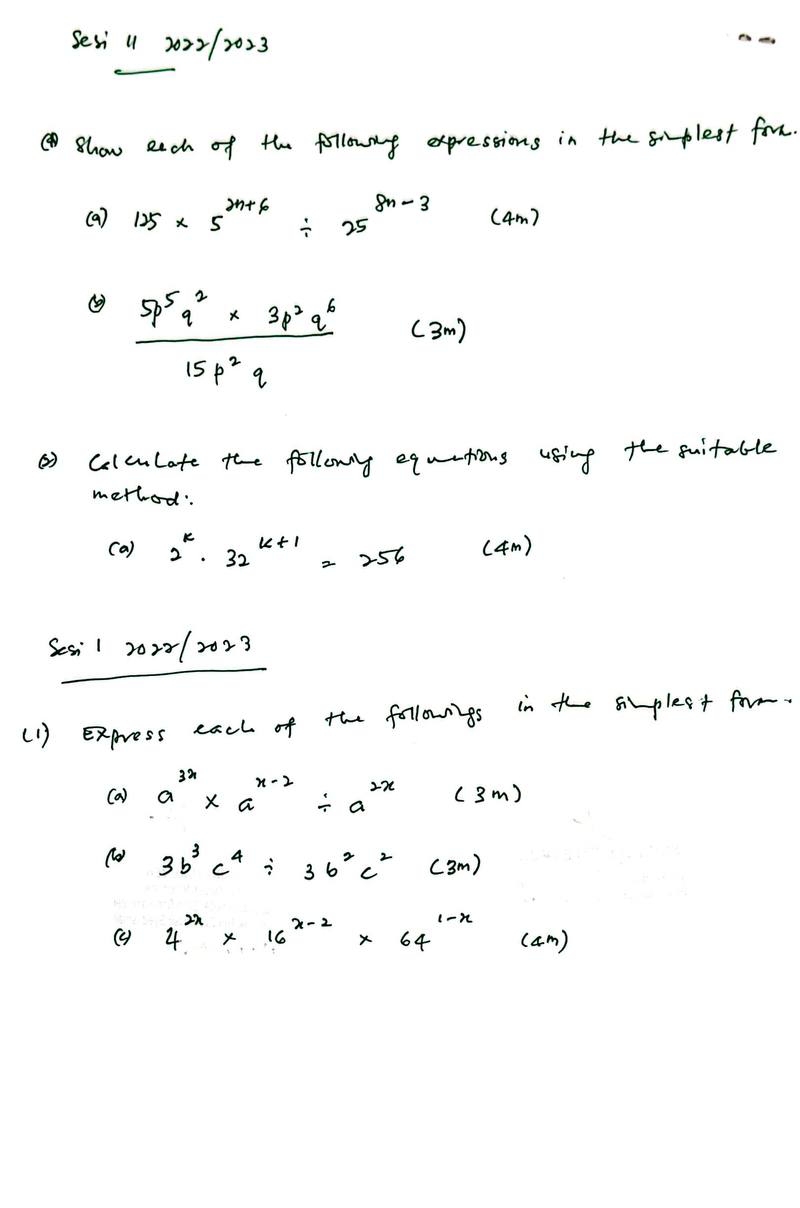 Sesi II 2022/2023
(1) Show each of the following expressions in the simplest form.
(a) 125 × 5^(2n+6) ÷ 25^(8n-3) (4m)
(b) (5p^5 q^2 × 3p^2 q^6) / (15p^2 q) (3m)
(2) Calculate the following equations using the suitable
method:
(a) 2^k . 32^(k+1) = 256 (4m)
Sesi 1 2022/2023
(1) Express each of the followings in the simplest form.
(a) a^(3x) × a^(x-2) ÷ a^(2x) (3m)
(b) 3b^3 c^4 ÷ 3b^2 c^2 (3m)
(c) 4^(2x) × 16^(x-2) × 64^(1-x) (4m)